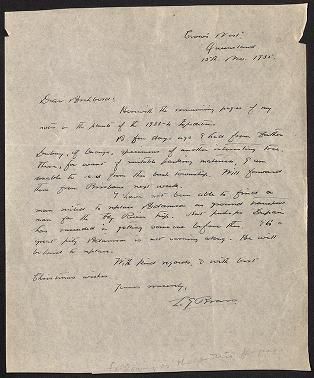 Crow's Nest
Queensland
15th Nov. 1935.
Dear Archbold:
Herewith the remaining pages of my
notes on the plants of the 1933-4 Expedition.
A few days ago I had from Father
of specimens of another interesting tree
There, for want of suitable packing materials, I am
unable to send from this bush township. Will forward
them from Brisbane next week.
I have not been able to find a
man suited to replace as ground transport
man for the Fly River trip. But perhaps
has succeeded in getting someone before this. It's a
great pity is not coming along. He will
be hard to replace.
With kind regards, & with best
Christmas wishes
Yours sincerely,
L. J. Brass